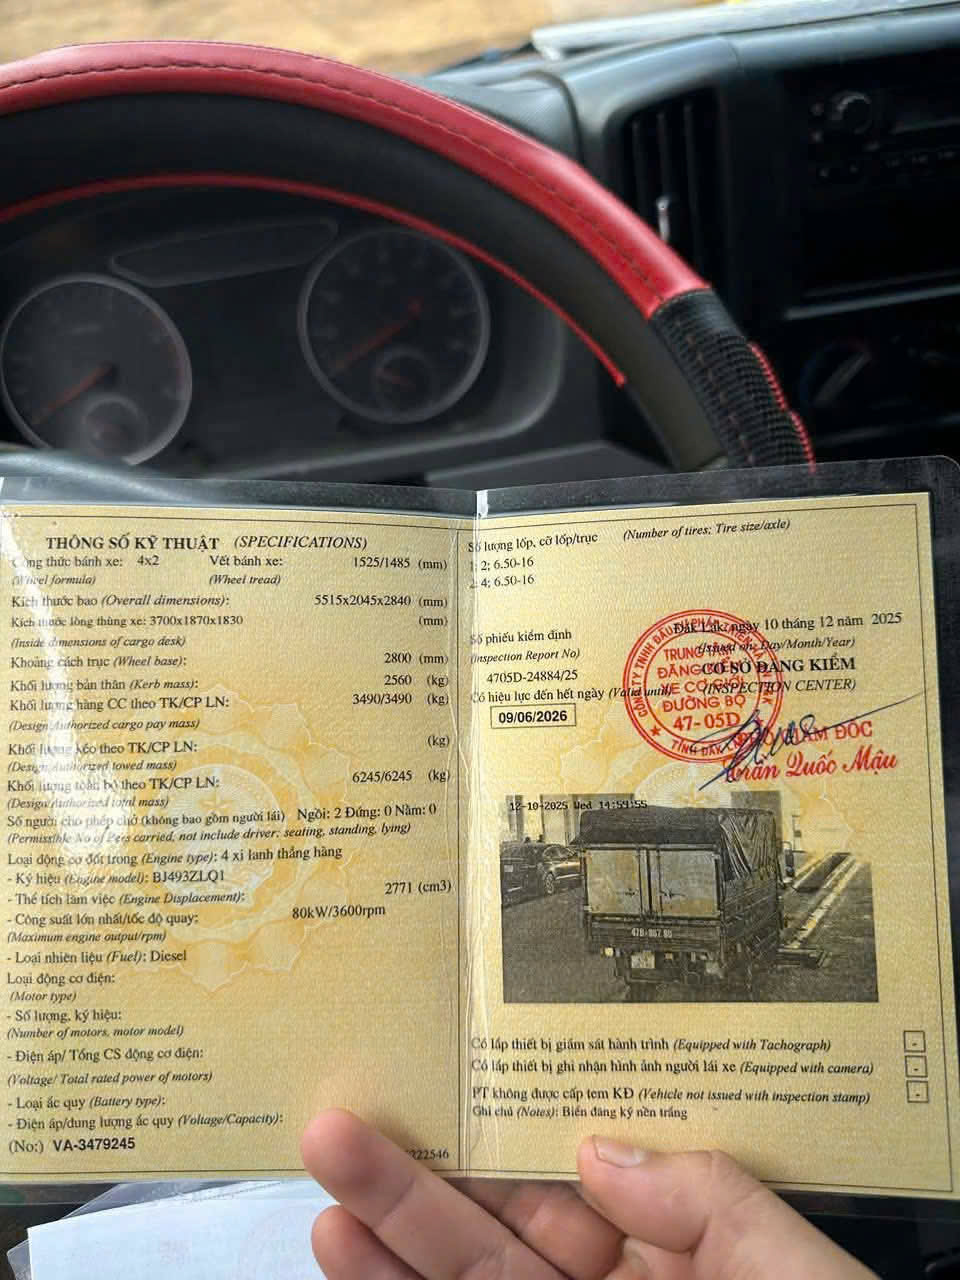 THÔNG SỐ KỸ THUẬT (SPECIFICATIONS)
Công thức bánh xe: 4x2 Vết bánh xe: 1525/1485 (mm)
(Wheel formula) (Wheel tread)
Kích thước bao (Overall dimensions): 5515x2045x2840 (mm)
Kích thước lòng thùng xe: 3700x1870x1830 (mm)
(Inside dimensions of cargo desk)
Khoảng cách trục (Wheel base): 2800 (mm)
Khối lượng bản thân (Kerb mass): 2560 (kg)
Khối lượng hàng CC theo TK/CP LN: 3490/3490 (kg)
(Design/Authorized cargo pay mass)
Khối lượng kéo theo TK/CP LN: (kg)
(Design/Authorized towed mass)
Khối lượng toàn bộ theo TK/CP LN: 6245/6245 (kg)
(Design/Authorized total mass)
Số người cho phép chở (không bao gồm người lái) Ngồi: 2 Đứng: 0 Nằm: 0
(Permissible No of Pers carried, not include driver: seating, standing, lying)
Loại động cơ đốt trong (Engine type): 4 xi lanh thẳng hàng
- Ký hiệu (Engine model): BJ493ZLQ1
- Thể tích làm việc (Engine Displacement): 2771 (cm3)
- Công suất lớn nhất/tốc độ quay: 80kW/3600rpm
(Maximum engine output/rpm)
- Loại nhiên liệu (Fuel): Diesel
Loại động cơ điện:
(Motor type)
- Số lượng, ký hiệu:
(Number of motors, motor model)
- Điện áp/ Tổng CS động cơ điện:
(Voltage/ Total rated power of motors)
- Loại ắc quy (Battery type):
- Điện áp/dung lượng ắc quy (Voltage/Capacity):
(No:) VA-3479245
222546
Số lượng lốp, cỡ lốp/trục (Number of tires; Tire size/axle)
1; 2; 6.50-16
2; 4; 6.50-16
Đắk Lắk, ngày 10 tháng 12 năm 2025
(Issued on: Day/Month/Year)
CƠ SỞ ĐĂNG KIỂM
(INSPECTION CENTER)
Số phiếu kiểm định
(Inspection Report No)
4705D-24884/25
Có hiệu lực đến hết ngày (Valid until)
09/06/2026
TRUNG TÂM
ĐĂNG KIỂM
XE CƠ GIỚI
ĐƯỜNG BỘ
47-05D
PHÓ GIÁM ĐỐC
Trần Quốc Mậu
12-10-2025 Wed 14:59:55
Có lắp thiết bị giám sát hành trình (Equipped with Tachograph) -
Có lắp thiết bị ghi nhận hình ảnh người lái xe (Equipped with camera) -
PT không được cấp tem KĐ (Vehicle not issued with inspection stamp) -
Ghi chú (Notes): Biển đăng ký nền trắng